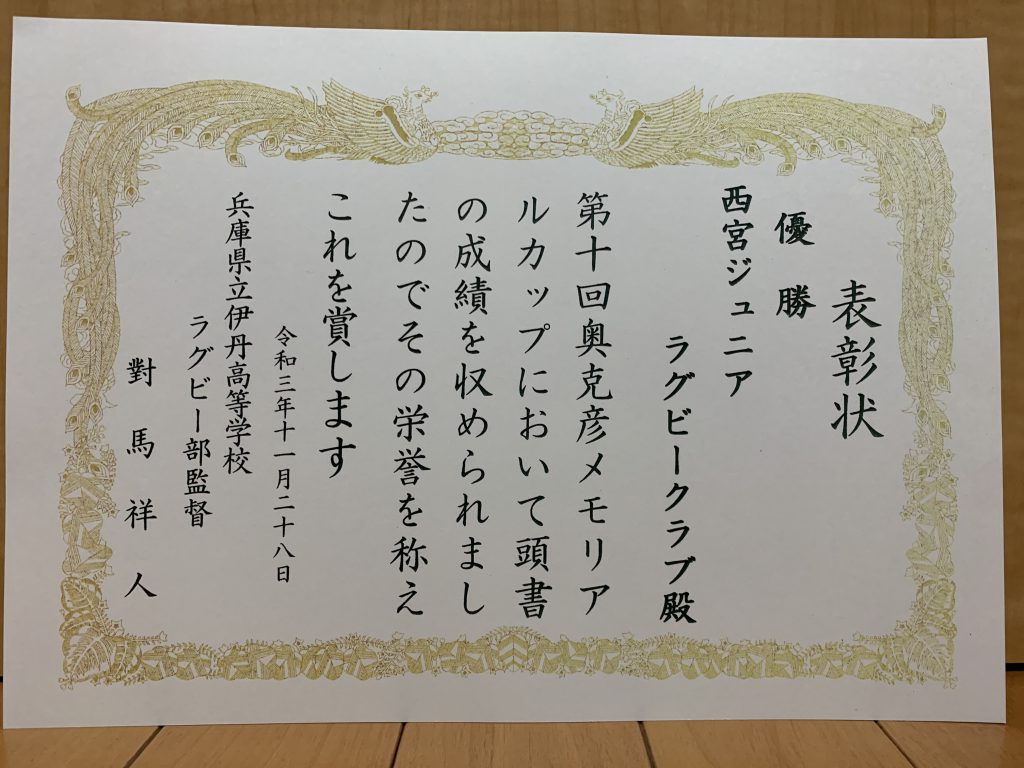 表彰状
優勝
西宮ジュニア
ラグビークラブ殿
第十回奥克彦メモリア
ルカップにおいて頭書
の成績を収められまし
たのでその栄誉を称え
これを賞します
令和三年十一月二十八日
兵庫県立伊丹高等学校
ラグビー部監督
對馬祥人